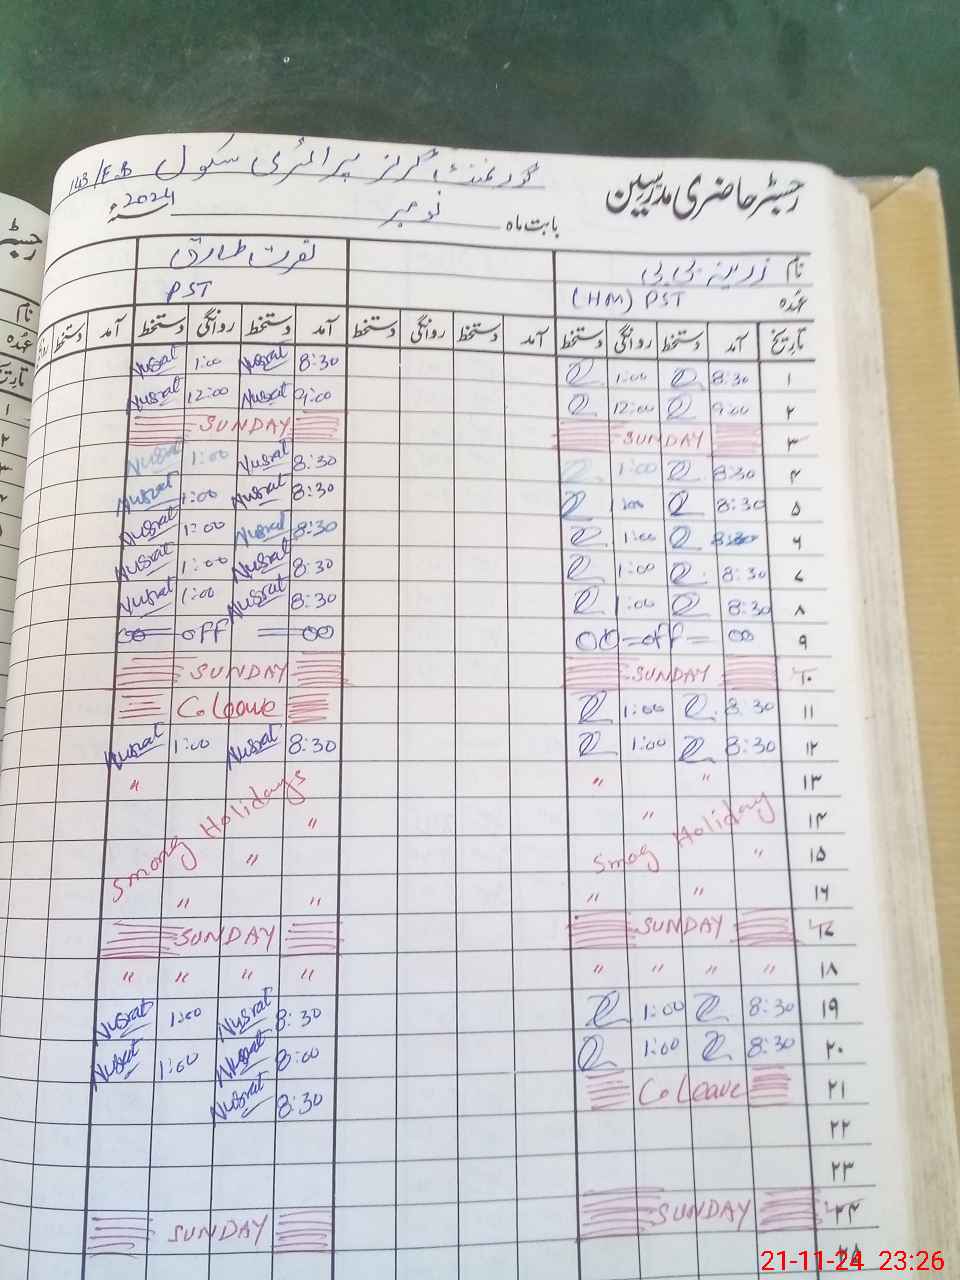 رجسٹر حاضری مدرسین گورنمنٹ گرلز پرائمری سکول 143/E.B
بابت ماہ نومبر 2024ء
نام زرینہ بی بی نصرت طارق
عہدہ (HM) PST PST
تاریخ آمد دستخط روانگی دستخط آمد دستخط روانگی دستخط آمد دستخط روانگی دستخط آمد دستخط
۱ 8:30 1:00 8:30 Nusrat 1:00 Nusrat
۲ 9:00 12:00 9:00 Nusrat 12:00 Nusrat
۳ SUNDAY SUNDAY
۴ 8:30 1:00 8:30 Nusrat 1:00 Nusrat
۵ 8:30 1:00 8:30 Nusrat 1:00 Nusrat
۶ 8:30 1:00 8:30 Nusrat 1:00 Nusrat
۷ 8:30 1:00 8:30 Nusrat 1:00 Nusrat
۸ 8:30 1:00 8:30 Nusrat 1:00 Nusrat
۹ 00 = off = 00 00 = off = 00
۱۰ SUNDAY SUNDAY
۱۱ 8:30 1:00 C. Leave
۱۲ 8:30 1:00 8:30 Nusrat 1:00 Nusrat
۱۳ " " "
۱۴ " Smog Holiday " Smong Holidays
۱۵ " "
۱۶ " " " "
۱۷ SUNDAY SUNDAY
۱۸ " " " " " " " "
۱۹ 8:30 1:00 8:30 Nusrat 1:00 Nusrat
۲۰ 8:30 1:00 8:00 Nusrat 1:00 Nusrat
۲۱ C. Leave 8:30 Nusrat
۲۲
۲۳
۲۴ SUNDAY SUNDAY
21-11-24 23:26